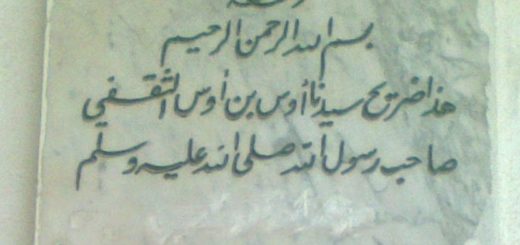 بسم الله الرحمن الرحيم
هذا ضريح سيدنا أوس بن أوس الثقفي
صاحب رسول الله صلى الله عليه وسلم